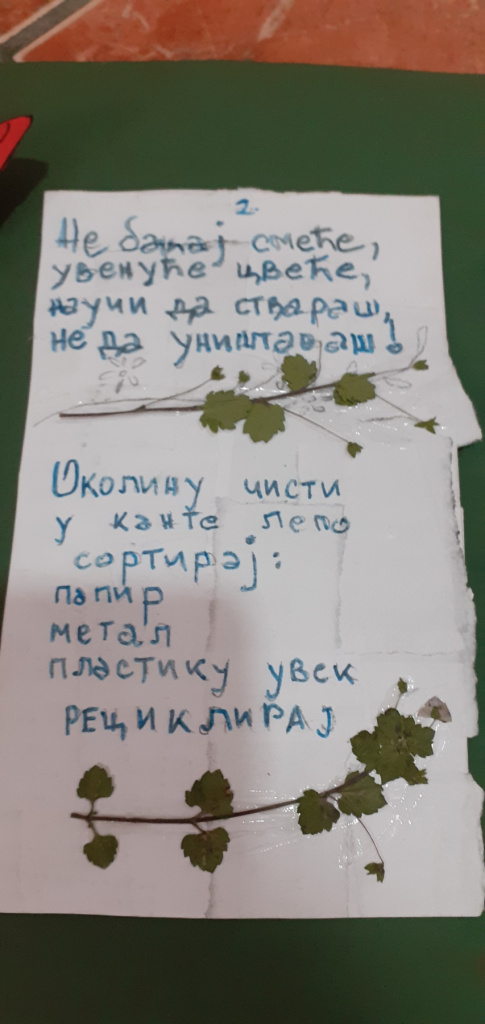 2.
Не бацај смеће,
увенуће цвеће,
научи да ствараш,
не да уништаваш!
Околину чисти
у канте лепо
сортирај:
папир
метал
пластику увек
РЕЦИКЛИРАЈ